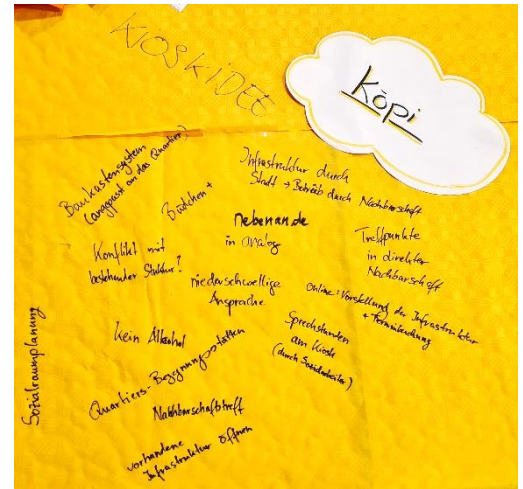 KIOSKIDEE
Köpi
Baukastensystem
(angepasst an das Quartier)
Büdchen +
Infrastruktur durch
Stadt + Betrieb durch Nachbarschaft
nebenan.de
in analog
Treffpunkte
in direkter
Nachbarschaft
Konflikt mit
bestehender Struktur?
niederschwellige
Ansprache
Online: Vorstellung der Infrastruktur
+ Terminbuchung
kein Alkohol
Sprechstunden
am Kiosk
(durch Sozialarbeiter)
Quartiers-Begegnungsstätten
Nachbarschaftstreff
vorhandene
Infrastruktur öffnen
Sozialraumplanung